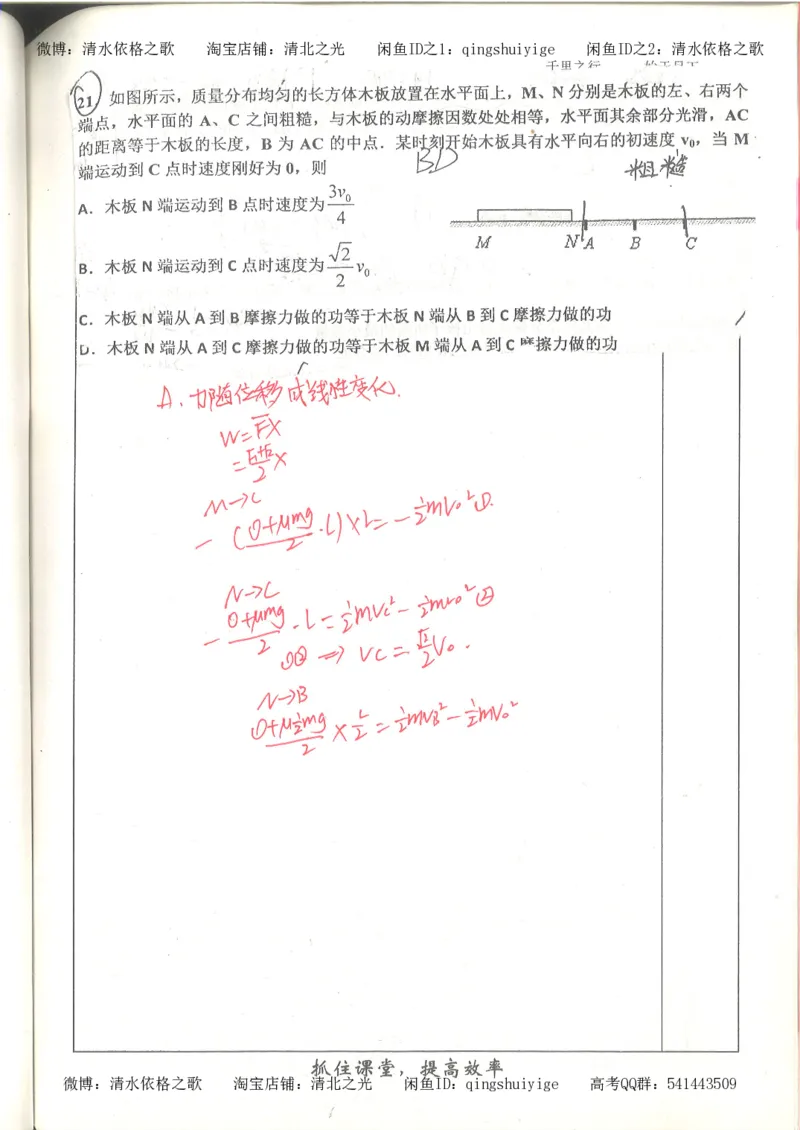 微博：清水依格之歌 淘宝店铺：清北之光 闲鱼ID之1：qingshuiyige 闲鱼ID之2：清水依格之歌
21 如图所示，质量分布均匀的长方体木板放置在水平面上，M、N 分别是木板的左、右两个
端点，水平面的 A、C 之间粗糙，与木板的动摩擦因数处处相等，水平面其余部分光滑，AC
的距离等于木板的长度，B 为 AC 的中点．某时刻开始木板具有水平向右的初速度 v₀，当 M
端运动到 C 点时速度刚好为 0，则
BD
粗糙
A．木板 N 端运动到 B 点时速度为 3v₀/4
M N A B C
B．木板 N 端运动到 C 点时速度为 √2/2 v₀
C．木板 N 端从 A 到 B 摩擦力做的功等于木板 N 端从 B 到 C 摩擦力做的功
D．木板 N 端从 A 到 C 摩擦力做的功等于木板 M 端从 A 到 C 摩擦力做的功
A. 力随位移成线性变化.
W=F̄X
M→C
N→C
-(0+μmg)/2 · L = ½mVc² - ½mv₀² ②
①② ⇒ Vc = √2/2 V₀ .
N→B
(0+μ½mg)/2 × L/2 = ½mVB² - ½mV₀²
抓住课堂，提高效率
微博：清水依格之歌 淘宝店铺：清北之光 闲鱼ID：qingshuiyige 高考QQ群：541443509